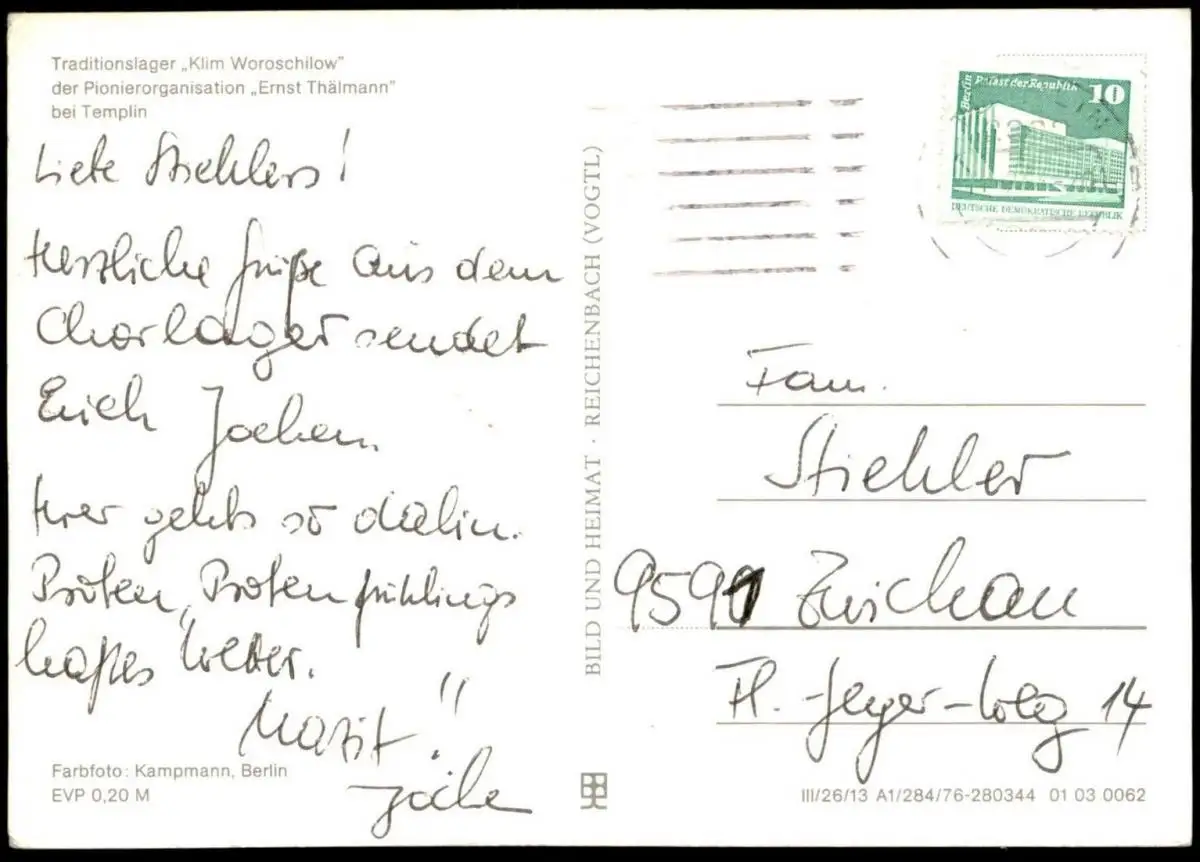 Traditionslager „Klim Woroschilow"
der Pionierorganisation „Ernst Thälmann"
bei Templin
Liebe Stiehlers!
Herzliche Grüße aus dem
Chorlager sendet
Euch Jochen.
Hier gehts so dahin.
Proben, Proben frühlings
haftes Wetter.
Marit!
Farbfoto: Kampmann, Berlin
EVP 0,20 M
BILD UND HEIMAT · REICHENBACH (VOGTL)
Berlin Palast der Republik 10
DEUTSCHE DEMOKRATISCHE REPUBLIK
Fam.
Stiehler
9591 Zwickau
Fl.-Geyer-Weg 14
III/26/13 A1/284/76-280344 01 03 0062